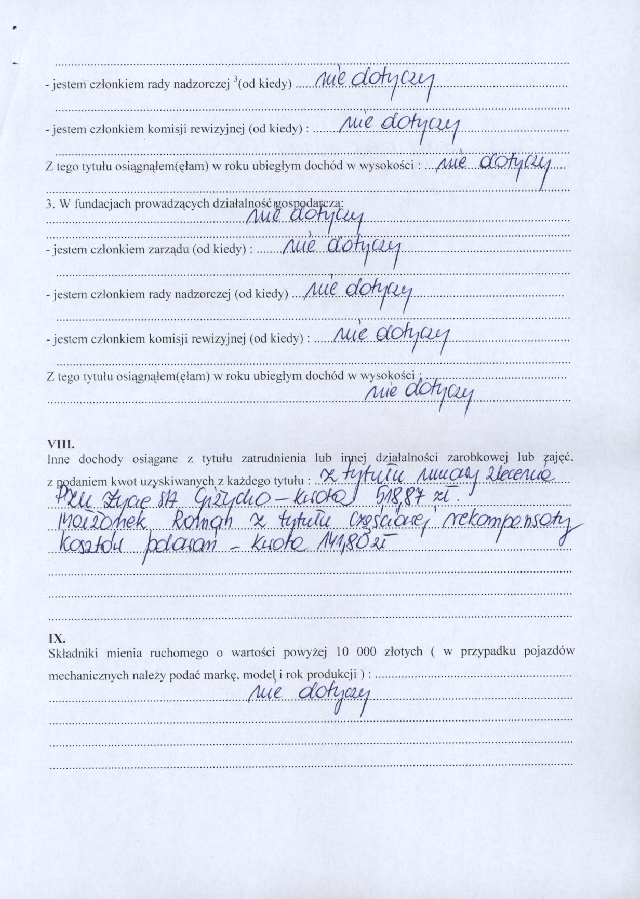 - jestem członkiem rady nadzorczej ³(od kiedy) ....nie dotyczy
- jestem członkiem komisji rewizyjnej (od kiedy) : ....nie dotyczy
Z tego tytułu osiągnąłem(ęłam) w roku ubiegłym dochód w wysokości : ...nie dotyczy....
3. W fundacjach prowadzących działalność gospodarczą:
nie dotyczy
- jestem członkiem zarządu (od kiedy) : ....nie dotyczy
- jestem członkiem rady nadzorczej (od kiedy) ...nie dotyczy
- jestem członkiem komisji rewizyjnej (od kiedy) : ....nie dotyczy
Z tego tytułu osiągnąłem(ęłam) w roku ubiegłym dochód w wysokości :
nie dotyczy
VIII.
Inne dochody osiągane z tytułu zatrudnienia lub innej działalności zarobkowej lub zajęć,
z podaniem kwot uzyskiwanych z każdego tytułu : ..z tytułu umowy zlecenia
PZU Życie SA Giżycko – kwota 518,87 zł.
Małżonek Roman z tytułu częściowej rekompensaty
kosztów – kwota 141,80 zł
IX.
Składniki mienia ruchomego o wartości powyżej 10 000 złotych ( w przypadku pojazdów
mechanicznych należy podać markę, model i rok produkcji ) :
nie dotyczy